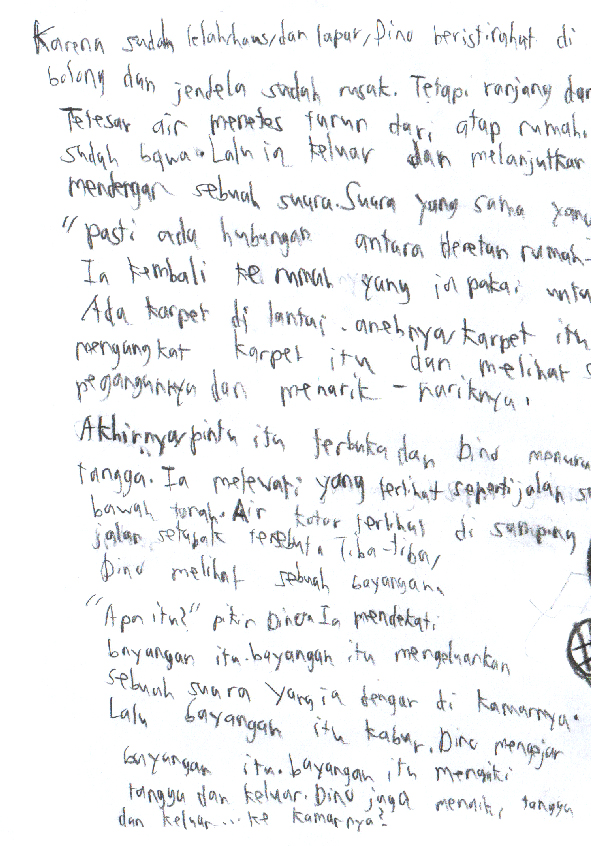 Karena sudah lelah, haus, dan lapar, Dino beristirahat di
bolong dan jendela sudah rusak. Tetapi ranjang dan
Tetesan air menetes turun dari atap rumah.
sudah bawa. Lalu ia keluar dan melanjutkan
mendengan sebuah suara. Suara yang sama yang
"pasti ada hubungan antara deretan rumah-
Ia kembali ke rumah yang ia pakai untu
Ada karpet di lantai. anehnya, karpet itu
mengangkat karpet itu dan melihat s
pegangannya dan menarik - nariknya.
Akhirnya, pintu itu terbuka dan Dino menuru
tangga. Ia melewati yang terlihat seperti jalan s
bawah tanah. Air kotor terlihat di samping
jalan setapak tersebut. Tiba-tiba,
Dino melihat sebuah bayangan.
"Apa itu?" pikir Dino. Ia mendekati
bayangan itu. bayangan itu mengeluarkan
sebuah suara yang ia dengar di kamarnya.
Lalu bayangan itu kabur. Dino mengejar
bayangan itu. bayangan itu menaiki
tangga dan keluar. Dino juga menaiki tangga
dan keluar... ke kamarnya?